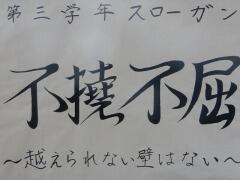 第三学年スローガン
不撓不屈
～越えられない壁はない～